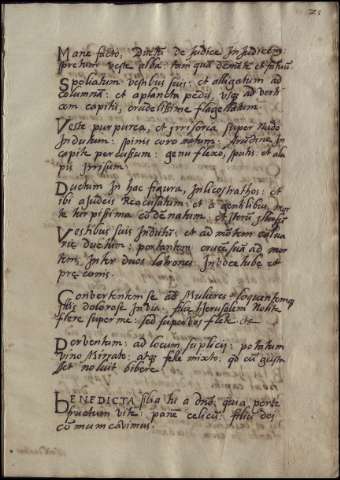 Mane facto, Ductū de Judice In Judicem
spretum veste alba: tam quā demēte et fatuū
Spoliatum vestibus suis: et alligatum ad
columnā: et aplanta pedis, vsq ad verti
cem capitis, crudelissime flagellatum.
Veste purpurea, et irrisorea super nudo
Indutum: spinis coronatum: Arudine In
capite percussum: genu flexo, sputis, et ala
pis irrisum.
Ductum In hac figura, In licostrathos: et
ibi a Judeis Recusatum: et a gentilibus
te turpissima cōdenatum.
Vestibus suis Indutū: et ad mōtem calua
rie ductum: portantem crucē suā ad mor
tem, Inter duos latrones: In voce tube et
preconis.
Convertentem se ad Mulieres loquentem
filis dolorose: filie Jerusalem Nolite
flere super me: sed super vos flete etc
Perventom: ad locum suplicij: potatum
vino Mirrato: atq fele mixto, qd cū gusta
set noluit bibere.
BENEDICTA filia tu a dnō: quia per te
fructum vite, panē celicū, filiū dei
cōmumcavimus.